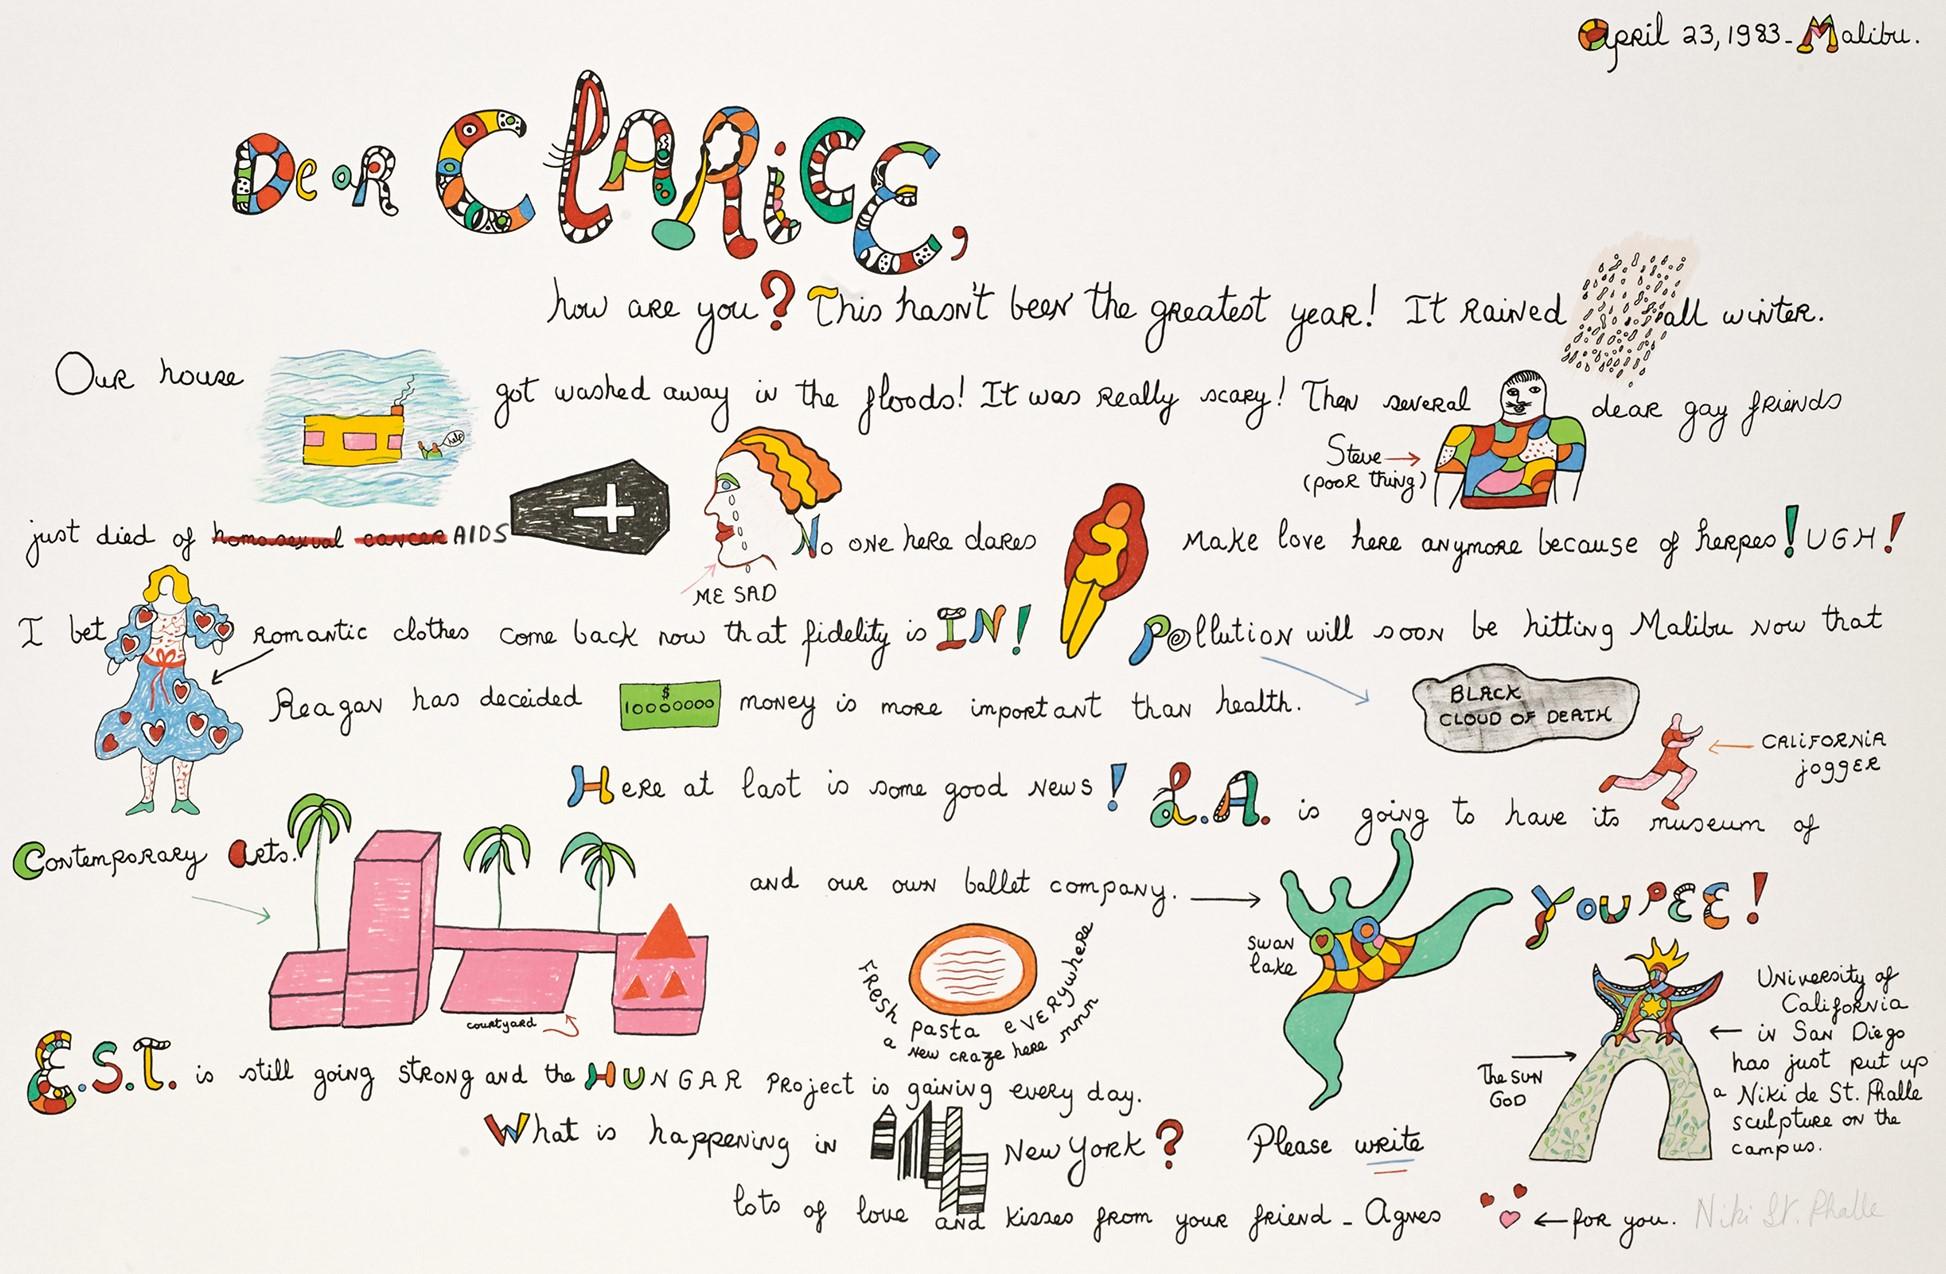 April 23, 1983 - Malibu.
Dear CLARICE,
how are you? This hasn't been the greatest year! It rained all winter.
Our house got washed away in the floods! It was really scary! Then several dear gay friends
help
Steve
(poor thing)
just died of homosexual cancer AIDS No one here dares make love here anymore because of herpes! UGH!
ME SAD
I bet romantic clothes come back now that fidelity is IN! Pollution will soon be hitting Malibu now that
Reagan has deceided money is more important than health.
$
10000000
BLACK
CLOUD OF DEATH
CALIFORNIA
jogger
Here at last is some good news! L.A. is going to have its museum of
Contemporary Arts. and our own ballet company. YOUPEE!
courtyard
Fresh pasta everywhere
a new craze here mmm
swan
lake
The SUN
GOD
University of
California
in San Diego
has just put up
a Niki de St. Phalle
sculpture on the
campus.
E.S.T. is still going strong and the HUNGAR Project is gaining every day.
What is happening in New York? Please write
lots of love and kisses from your friend - Agnes for you.
Niki St. Phalle